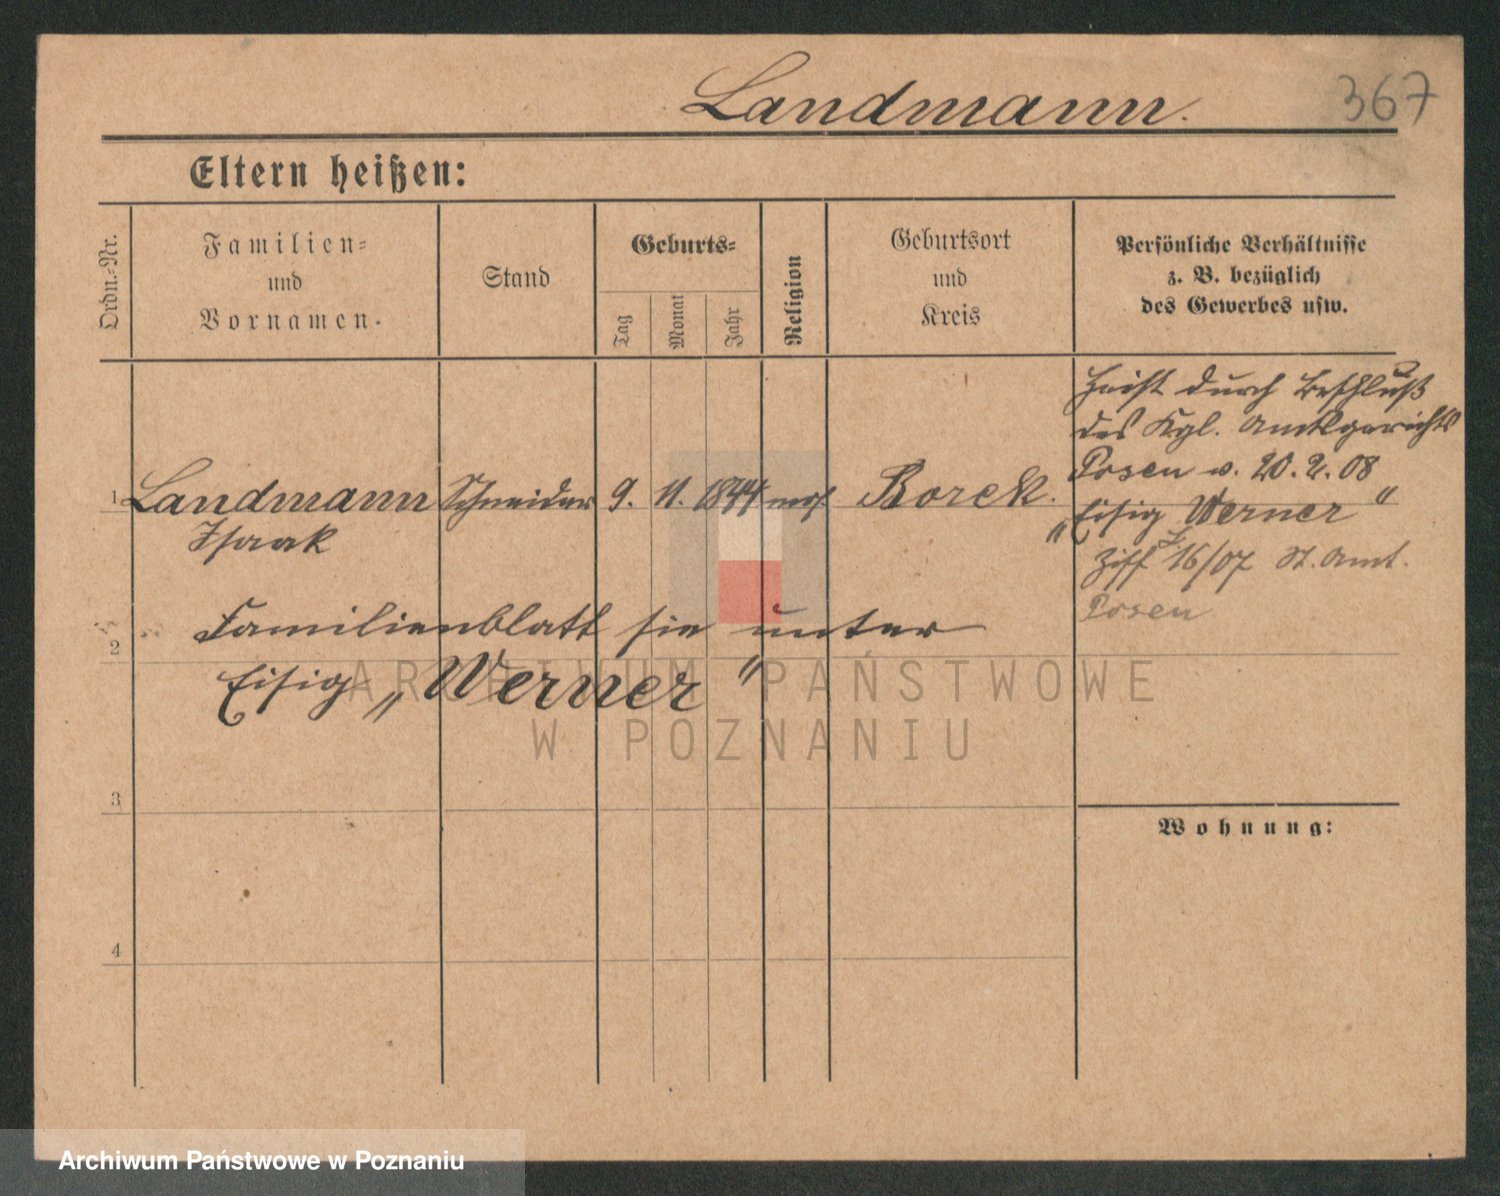 Landmann. 367
Eltern heißen:
Ordn.-Nr.
Familien-
und
Vornamen.
Stand
Geburts-
Tag
Monat
Jahr
Religion
Geburtsort
und
Kreis
Persönliche Verhältnisse
z. B. bezüglich
des Gewerbes usw.
1 Landmann Schneider 9. 11. 1844 mos. Borek.
Isaak
Heist durch Beschluß
des Kgl. Amtsgerichts
Posen v. 20.2.08
„Eisig Werner"
Ziff 16/07 St. Amt.
Posen
2 Familienblatt sie unter
Eisig „Werner"
3
4
Wohnung:
ARCHIWUM PAŃSTWOWE
W POZNANIU
Archiwum Państwowe w Poznaniu